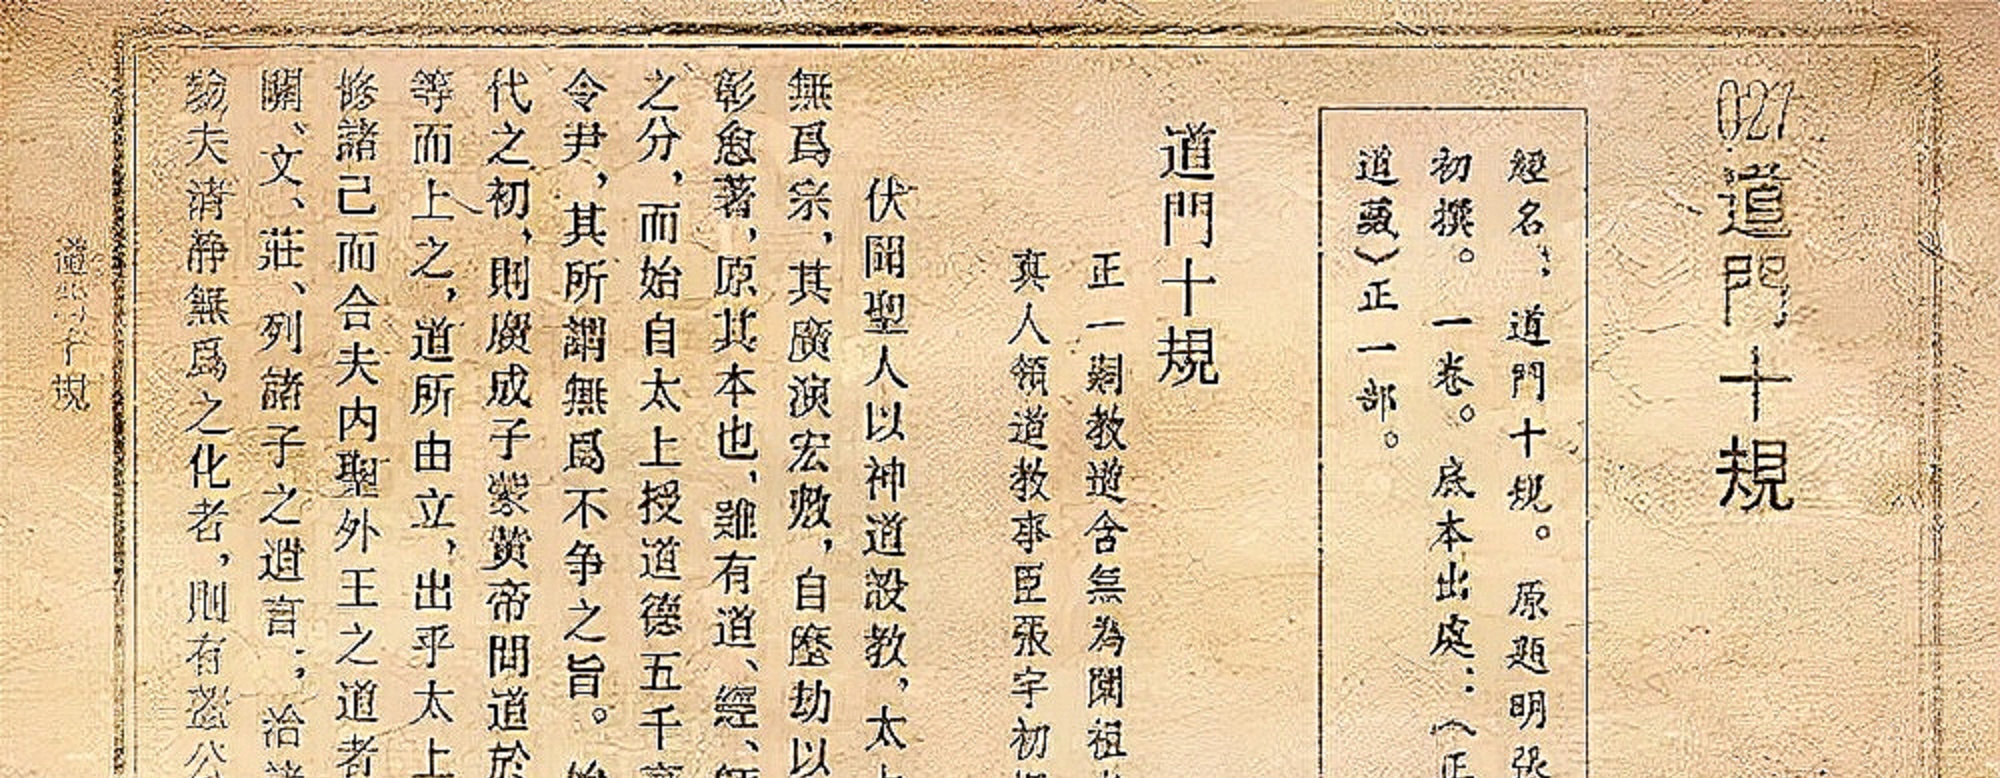 027 道門十規
經名：道門十規。原題明張
初撰。一卷。底本出處：《正
道藏》正一部。
道門十規
正一嗣教道合無為闡祖
真人領道教事臣張宇初
伏聞聖人以神道設教，太
無爲宗，其廣演宏敷，自歷劫以
彰愈著，原其本也，雖有道、經、
之分，而始自太上授道德五千
令尹，其所謂無爲不争之旨。始
代之初，則廣成子蒙黄帝問道於
等而上之，道所由立，出乎太上
修諸己而合夫内聖外王之道者
關、文、莊、列諸子之遺言；治諸
夫清静無爲之化者，則有蓋公
道門十規